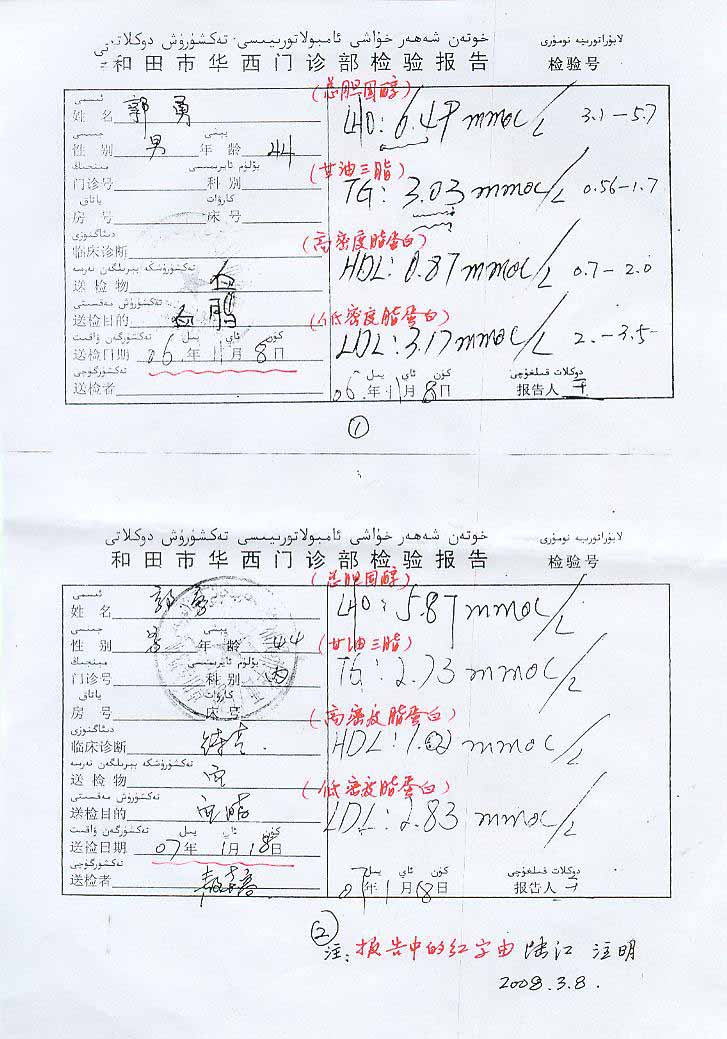 خوتەن شەھەر خۇاشى ئامبولاتورىيىسى تەكشۈرۈش دوكلاتى
لابۇراتورىيە نومۇرى
和田市华西门诊部检验报告 检验号
(总胆固醇)
ئىسمى
姓名 郭勇
6.47 mmoL/L 3.1-5.7
جىسى يېشى
性别 男 年龄 44
(甘油三脂)
مىنخىڭ بۆلۈم ئايرىسىسى
门诊号 科别
TG: 3.03 mmoL/L 0.56-1.7
ياتاق كارۋات
房号 床号
(高密度脂蛋白)
دىئاگنوزى
临床诊断
HDL: 0.87 mmoL/L 0.7-2.0
تەكشۈرۈشكە بېرىلگەن نەرسە
送检物 血
تەكشۈرۈش مەقسىتى
送检目的 血脂
(低密度脂蛋白)
LDL: 3.17 mmoL/L 2.-3.5
تەكشۈرگەن ۋاقىت يىل ئاي كۈن
送检日期 06.年11月8日
تەكشۈرگۈچى
送检者
يىل ئاي كۈن دوكلات قىلغۇچى
06.年11月8日 报告人
①
خوتەن شەھەر خۇاشى ئامبولاتورىيىسى تەكشۈرۈش دوكلاتى
لابۇراتورىيە نومۇرى
和田市华西门诊部检验报告 检验号
(总胆固醇)
ئىسمى
姓名 郭勇
5.87 mmoL/L
جىسى يېشى
性别 年龄 44
(甘油三脂)
مىنخىڭ بۆلۈم ئايرىسىسى
门诊号 科别 内
TG: 2.73 mmoL/L
ياتاق كارۋات
房号 床号
(高密度脂蛋白)
دىئاگنوزى
临床诊断
HDL: 1.02 mmoL/L
تەكشۈرۈشكە بېرىلگەن نەرسە
送检物 血
(低密度脂蛋白)
تەكشۈرۈش مەقسىتى
送检目的 血脂
LDL: 2.83 mmoL/L
تەكشۈرگەن ۋاقىت يىل ئاي كۈن
送检日期 07年1月18日
تەكشۈرگۈچى
送检者
يىل ئاي كۈن دوكلات قىلغۇچى
07年1月18日 报告人
②
注:报告中的红字由陆江 注明
2008.3.8.